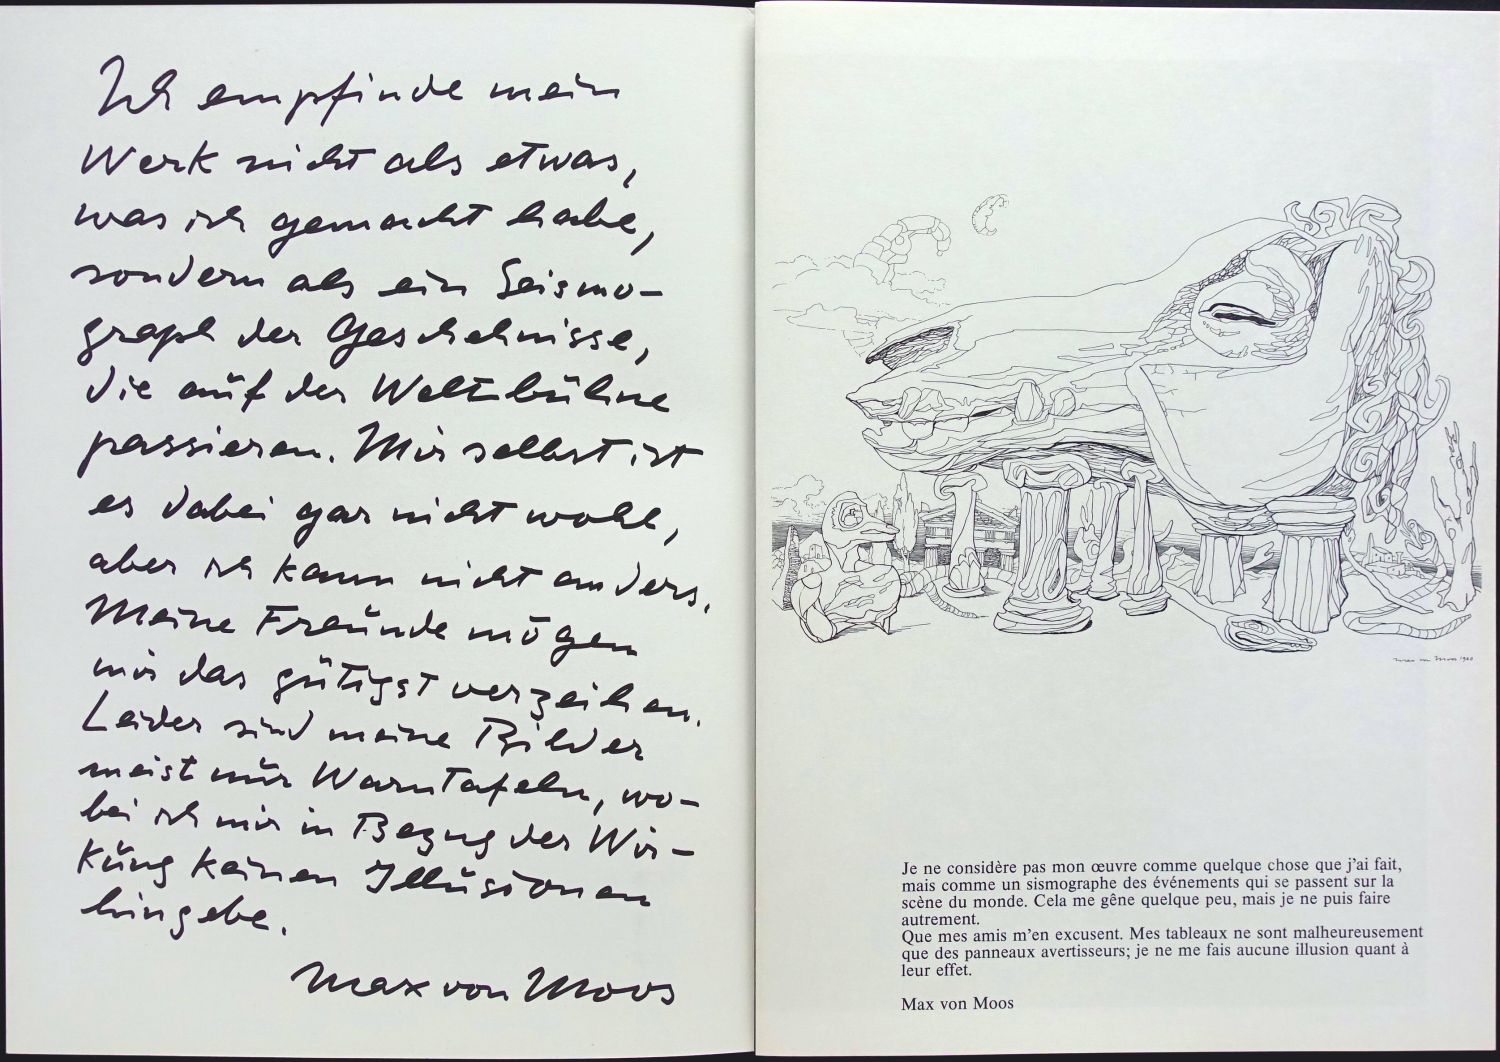 Ich empfinde mein
Werk nicht als etwas,
was ich gemacht habe,
sondern als ein Seismo-
graph der Geschehnisse,
die auf der Weltbühne
passieren. Mir selbst ist
es dabei gar nicht wohl,
aber ich kann nicht anders.
Meine Freunde mögen
mir das gütigst verzeihen.
Leider sind meine Bilder
meist nur Warntafeln, wo-
bei ich mir in Bezug der Wir-
kung keinen Illusionen
hingebe.
Max von Moos
Max von Moos 1960
Je ne considère pas mon œuvre comme quelque chose que j'ai fait,
mais comme un sismographe des événements qui se passent sur la
scène du monde. Cela me gêne quelque peu, mais je ne puis faire
autrement.
Que mes amis m'en excusent. Mes tableaux ne sont malheureusement
que des panneaux avertisseurs; je ne me fais aucune illusion quant à
leur effet.
Max von Moos